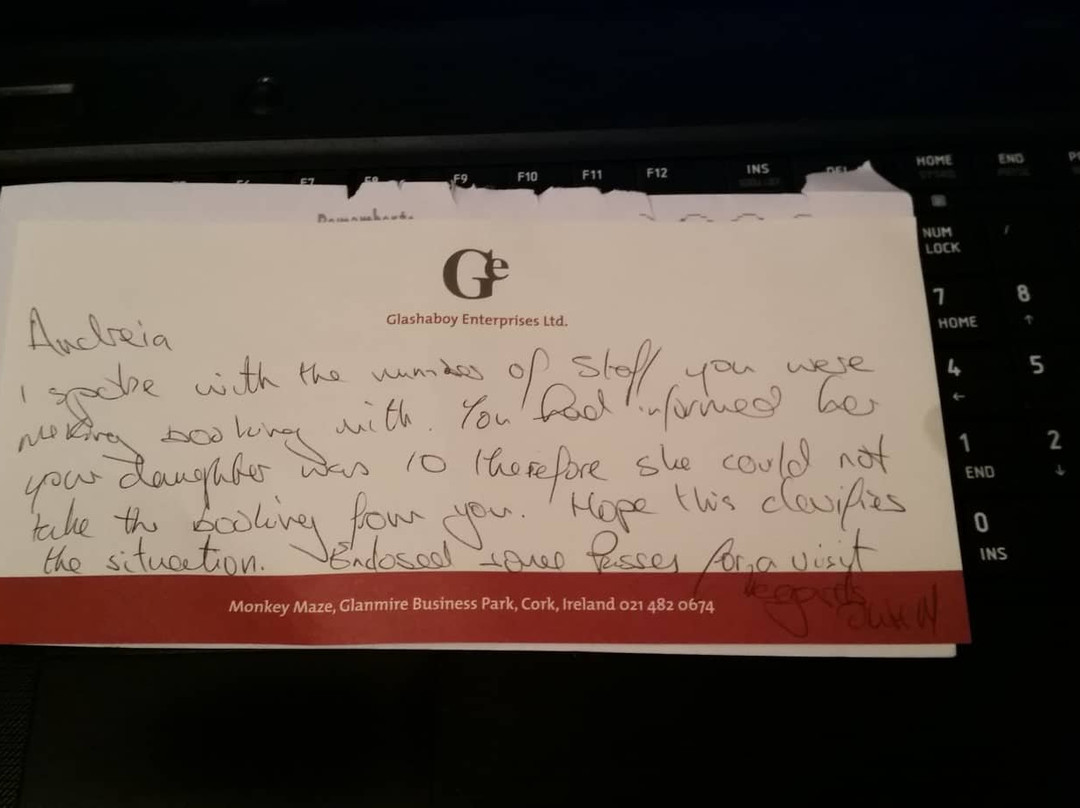 F9 F10 F11 F12 INS HOME END
NUM LOCK
7 HOME 8
4 5
1 END 2
0 INS
Ge
Glashaboy Enterprises Ltd.
Andreia
I spoke with the number of Staff you were
making booking with. You had informed her
your daughter was 10 therefore she could not
take the booking from you. Hope this clarifies
the situation. Enclosed some Passes for a visit
Regards
Monkey Maze, Glanmire Business Park, Cork, Ireland 021 482 0674